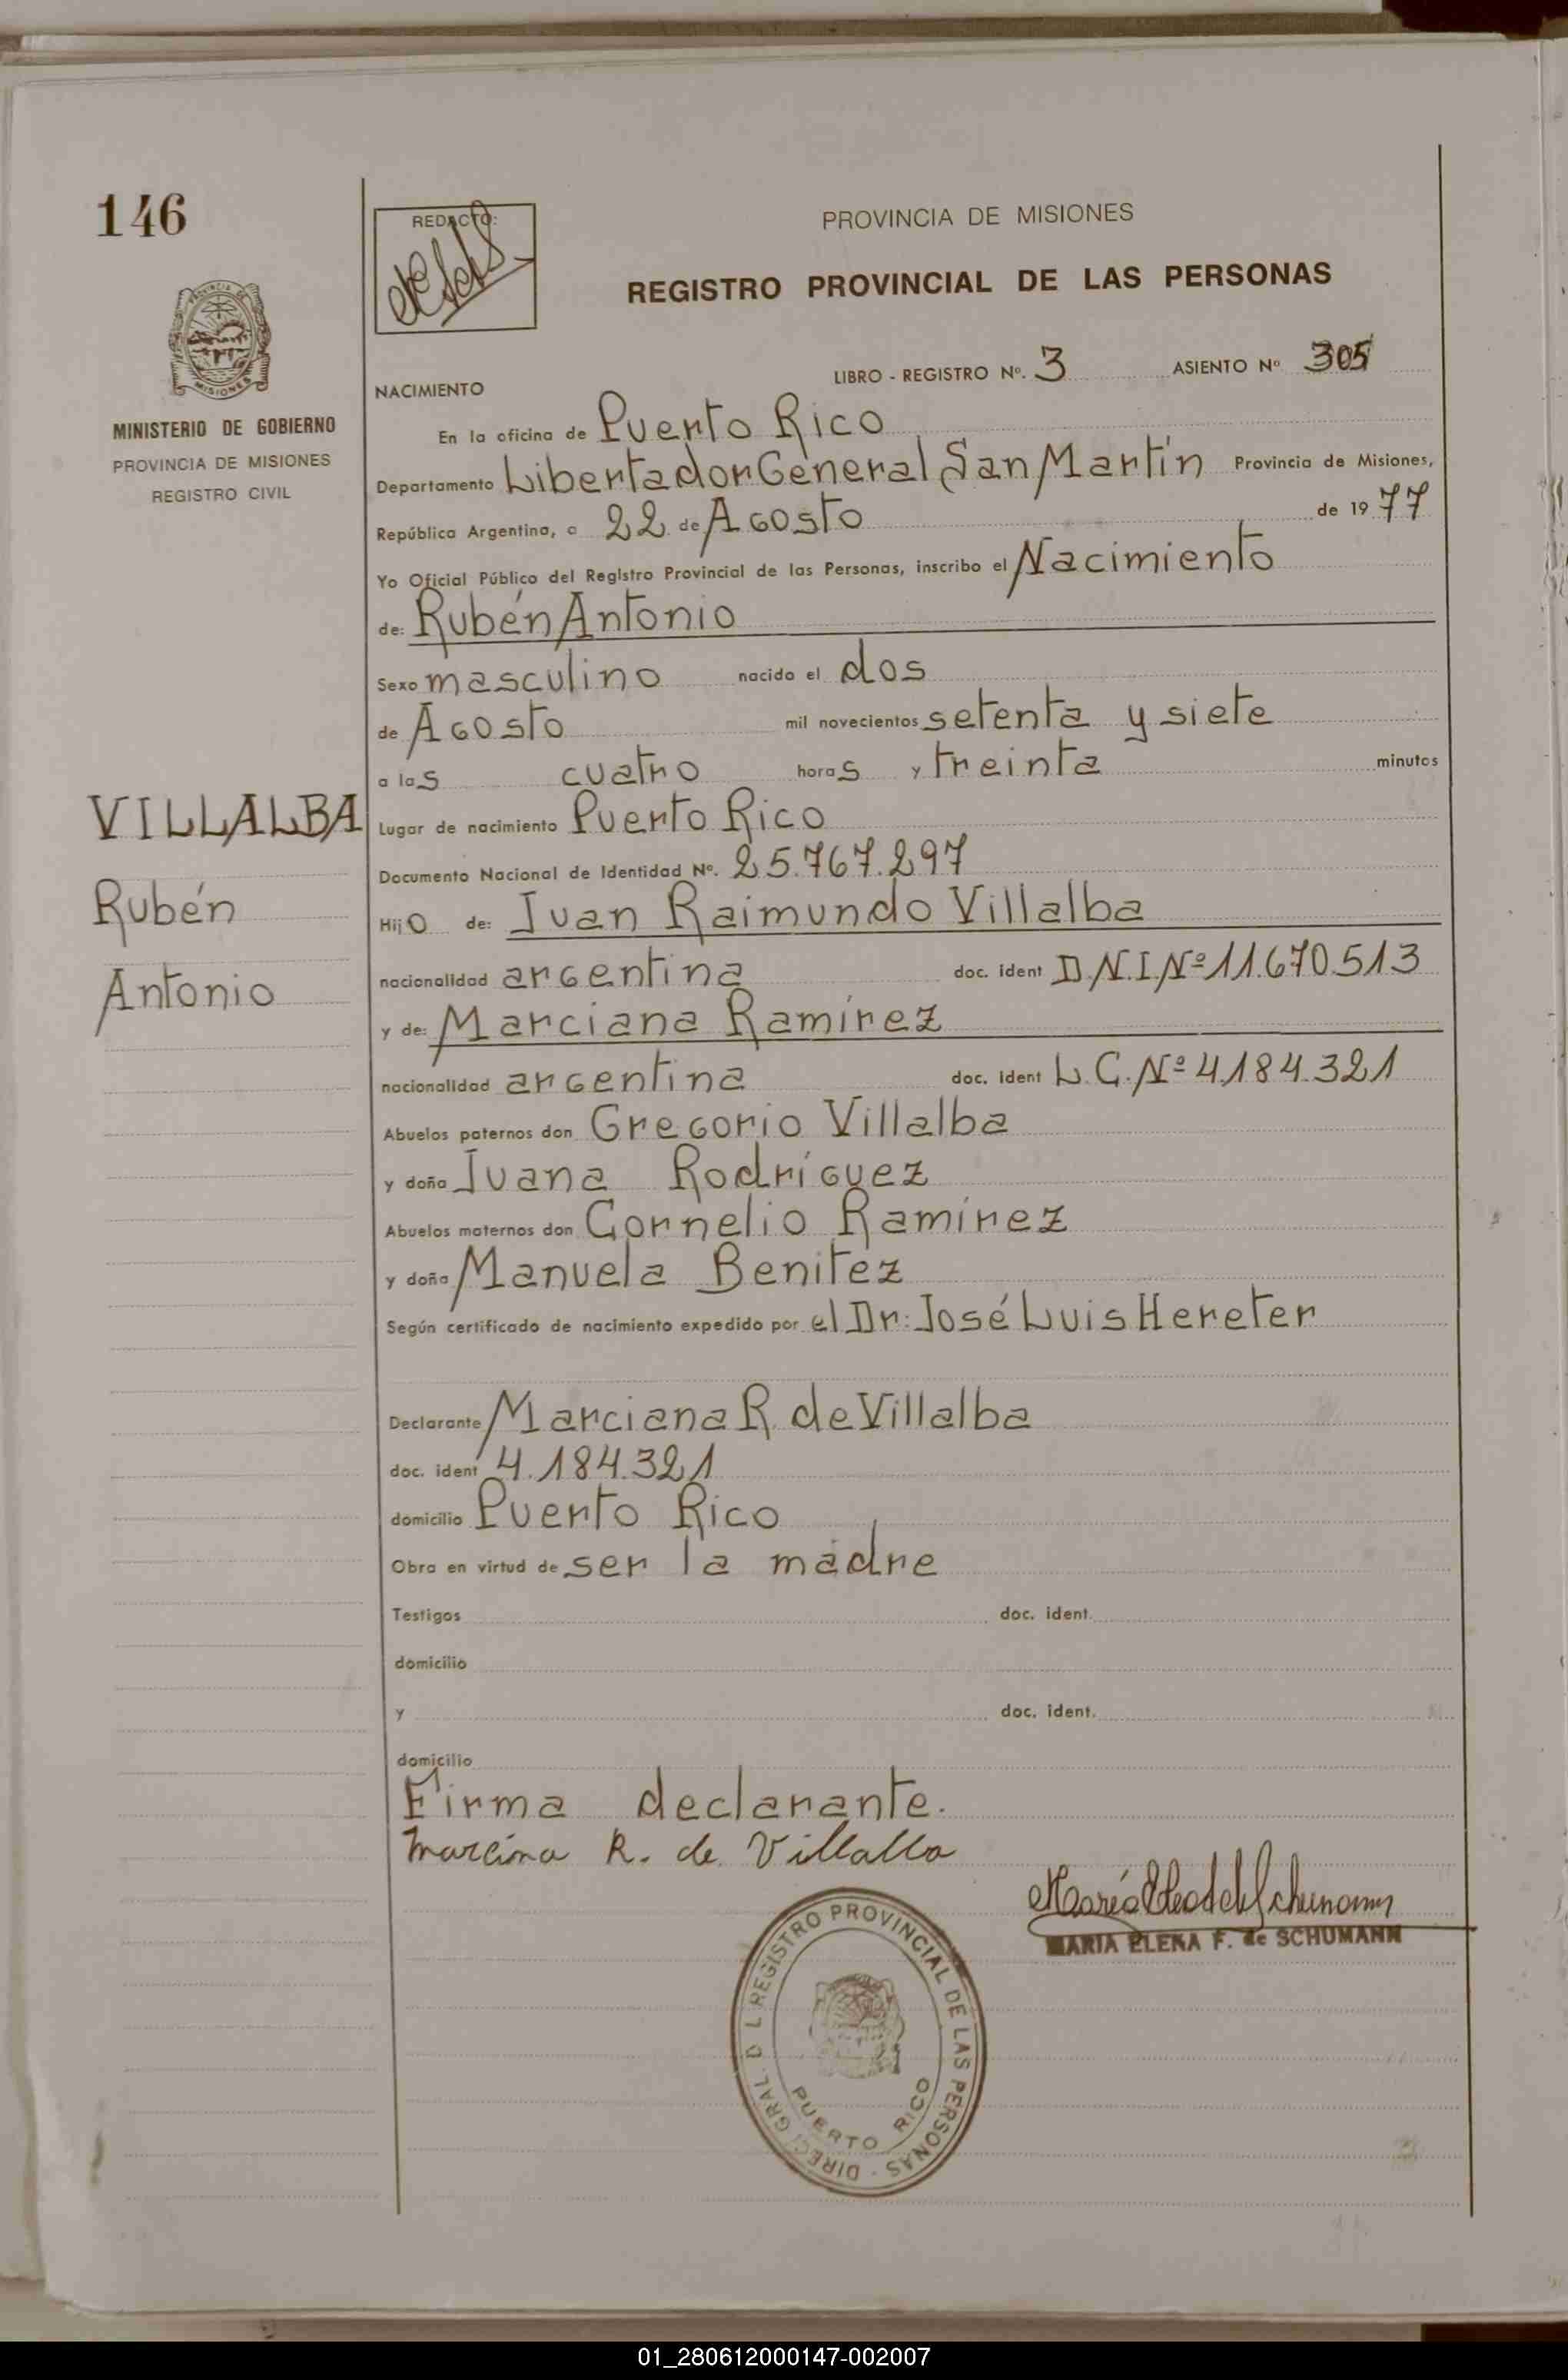 146
REDACTO:
PROVINCIA DE MISIONES
REGISTRO PROVINCIAL DE LAS PERSONAS
MINISTERIO DE GOBIERNO
PROVINCIA DE MISIONES
REGISTRO CIVIL
NACIMIENTO LIBRO - REGISTRO Nº. 3 ASIENTO Nº 305
En la oficina de Puerto Rico
Departamento Libertador General San Martín Provincia de Misiones,
República Argentina, a 22 de Agosto de 1977
Yo Oficial Público del Registro Provincial de las Personas, inscribo el Nacimiento
de: Rubén Antonio
Sexo masculino nacido el dos
de Agosto mil novecientos setenta y siete
a las cuatro horas y treinta minutos
VILLALBA
Rubén
Antonio
Lugar de nacimiento Puerto Rico
Documento Nacional de Identidad Nº. 25.767.297
Hijo de: Juan Raimundo Villalba
nacionalidad argentina doc. ident D.N.I.Nº 11.670.513
y de: Marciana Ramírez
nacionalidad argentina doc. ident L.C.Nº 4.184.321
Abuelos paternos don Gregorio Villalba
y doña Juana Rodríguez
Abuelos maternos don Cornelio Ramírez
y doña Manuela Benitez
Según certificado de nacimiento expedido por el Dr: José Luis Hereter
Declarante Marciana R. de Villalba
doc. ident 4.184.321
domicilio Puerto Rico
Obra en virtud de ser la madre
Testigos doc. ident.
domicilio
y doc. ident.
domicilio
Firma declarante.
Marcina R. de Villalba
MARIA ELENA F. de SCHUMANN
DIREC. GRAL. D L REGISTRO PROVINCIAL DE LAS PERSONAS
PUERTO RICO
01_280612000147-002007